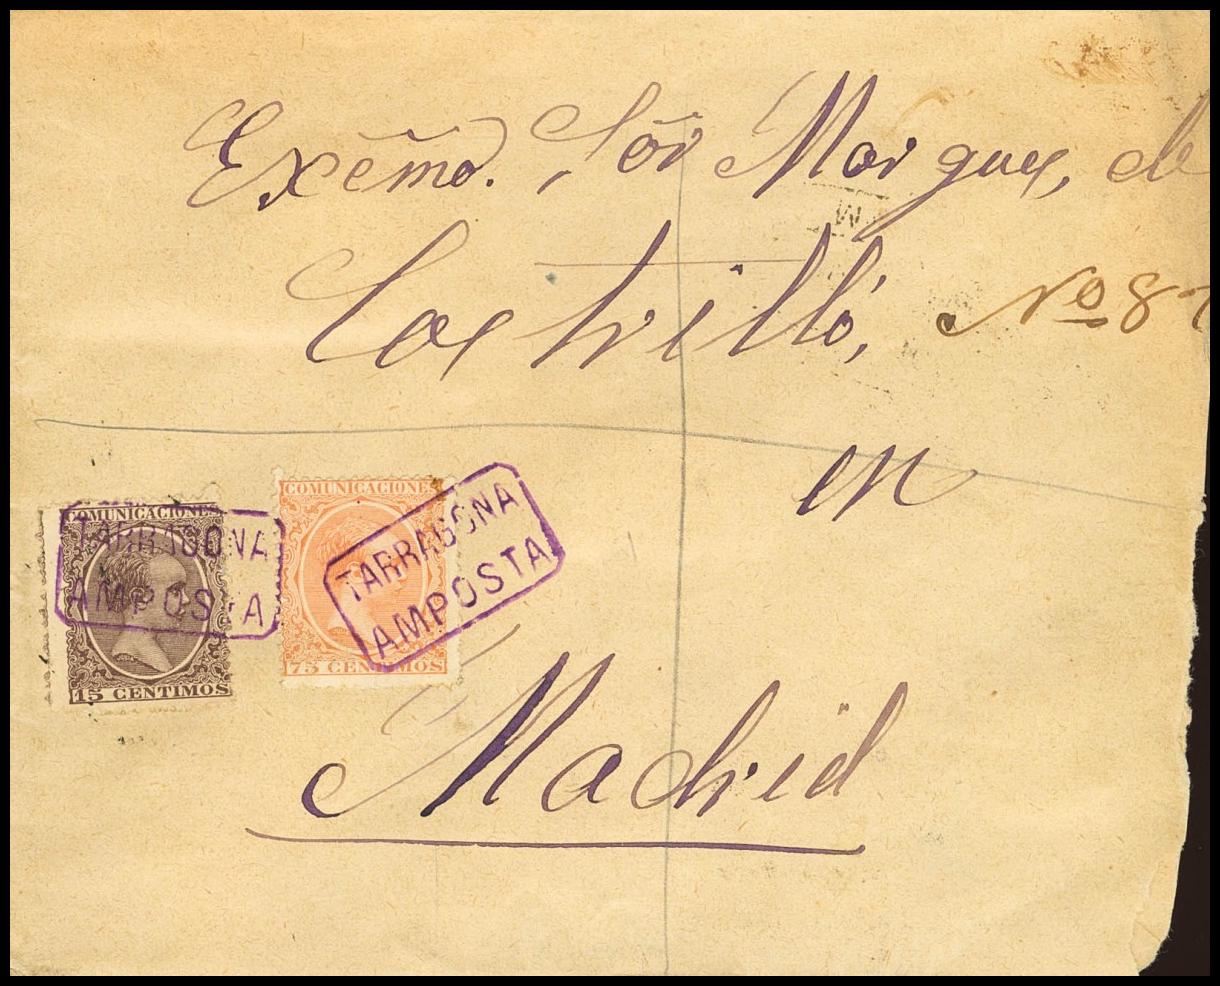 Exc̃mo. Sõr Marques, de
Castrillo, Nº 8
en
COMUNICACIONES
TARRAGONA
AMPOSTA
15 CENTIMOS
COMUNICACIONES
TARRAGONA
AMPOSTA
75 CENTIMOS
Madrid